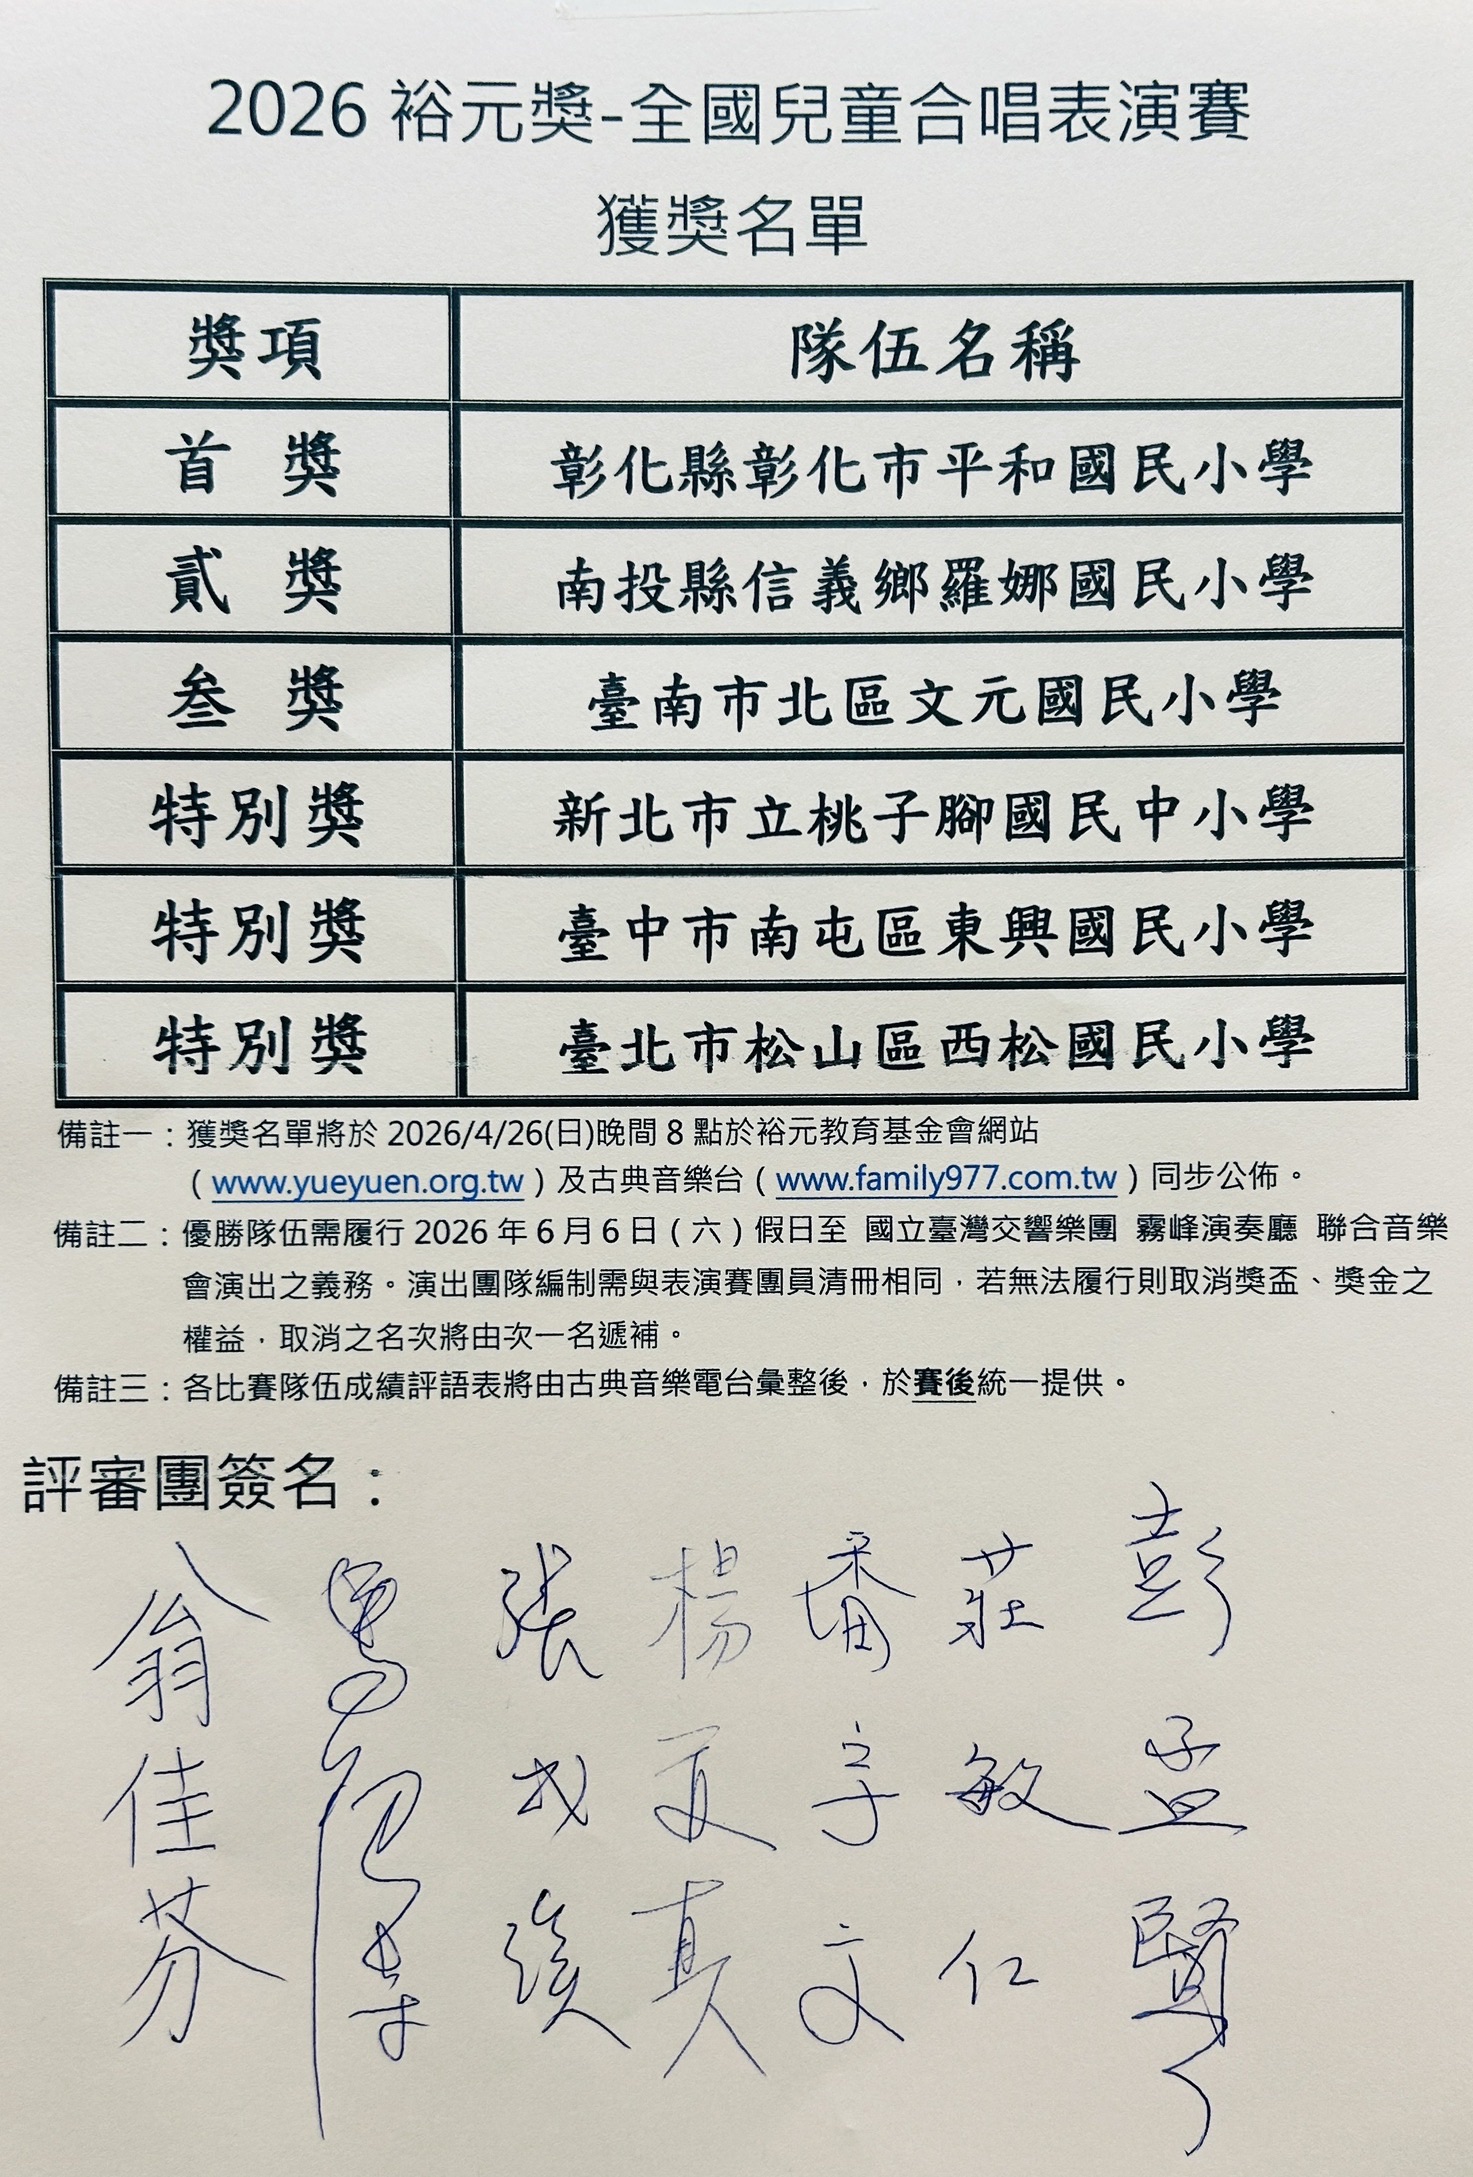 2026 裕元獎-全國兒童合唱表演賽
獲獎名單
獎項 隊伍名稱
首 獎 彰化縣彰化市平和國民小學
貳 獎 南投縣信義鄉羅娜國民小學
叁 獎 臺南市北區文元國民小學
特別獎 新北市立桃子腳國民中小學
特別獎 臺中市南屯區東興國民小學
特別獎 臺北市松山區西松國民小學
備註一：獲獎名單將於 2026/4/26(日)晚間 8 點於裕元教育基金會網站
（www.yueyuen.org.tw）及古典音樂台（www.family977.com.tw）同步公佈。
備註二：優勝隊伍需履行 2026 年 6 月 6 日（六）假日至 國立臺灣交響樂團 霧峰演奏廳 聯合音樂
會演出之義務。演出團隊編制需與表演賽團員清冊相同，若無法履行則取消獎盃、獎金之
權益，取消之名次將由次一名遞補。
備註三：各比賽隊伍成績評語表將由古典音樂電台彙整後，於賽後統一提供。
評審團簽名：
翁佳芬
張成璞
楊夏真
莊敏仁
彭孟賢